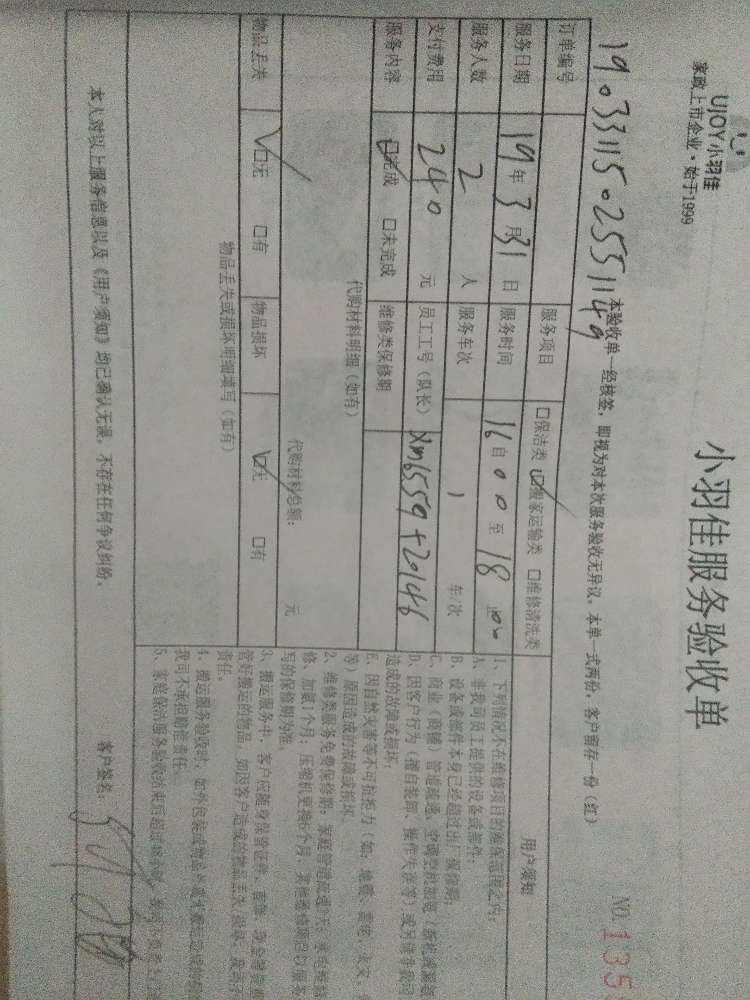 UJOY小羽佳
家政上市企业·始于1999
小羽佳服务验收单
NO.135
本验收单一经核签，即视为对本次服务验收无异议。本单一式两份，客户留存一份（红）
19.03311502551149
订单编号 服务项目 □保洁类 ☑搬家运输类 □维修清洗类
服务日期 19年3月31日 服务时间 16自00至18止00
服务人数 2人 服务车次 1 车/次
支付费用 240元 员工工号（队长） Xm6559+20146
服务内容 ☑完成 □未完成 维修类保修期
代购材料明细（如有）
代购材料总额： 元
物品丢失 ☑无 □有 物品损坏 ☑无 □有
物品丢失或损坏明细填写（如有）
用户须知
1、下列情况不在维修项目的维保范围之内：
A、非我司员工提供的设备或部件；
B、设备或部件本身已经超过出厂保修期；
C、商业（商铺）管道疏通、空调空机加氨、拆机
D、因客户行为（擅自装卸、操作失误等）或另请非我司
造成的故障或损坏；
E、因自然灾害等不可抗拒力（如：地震、雷电、火灾、
等）原因造成的故障或损坏。
2、维修类服务免费保修期：家庭管道疏通
修、加氨1个月；压缩机更换6个月；其他维修项目以服务
写的保修期为准。
3、搬运服务中，客户应随身保管证件、首饰、现金等贵重
管好搬运的物品，如因客户造成的物品丢失、损坏，我司不
责任。
4、搬运服务验收时，如外包装或物品外观
我司不承担赔偿责任。
5、家庭保洁服务验收结束后
本人对以上服务信息以及《用户须知》均已确认无误，不存在任何争议纠纷。 客户签名：